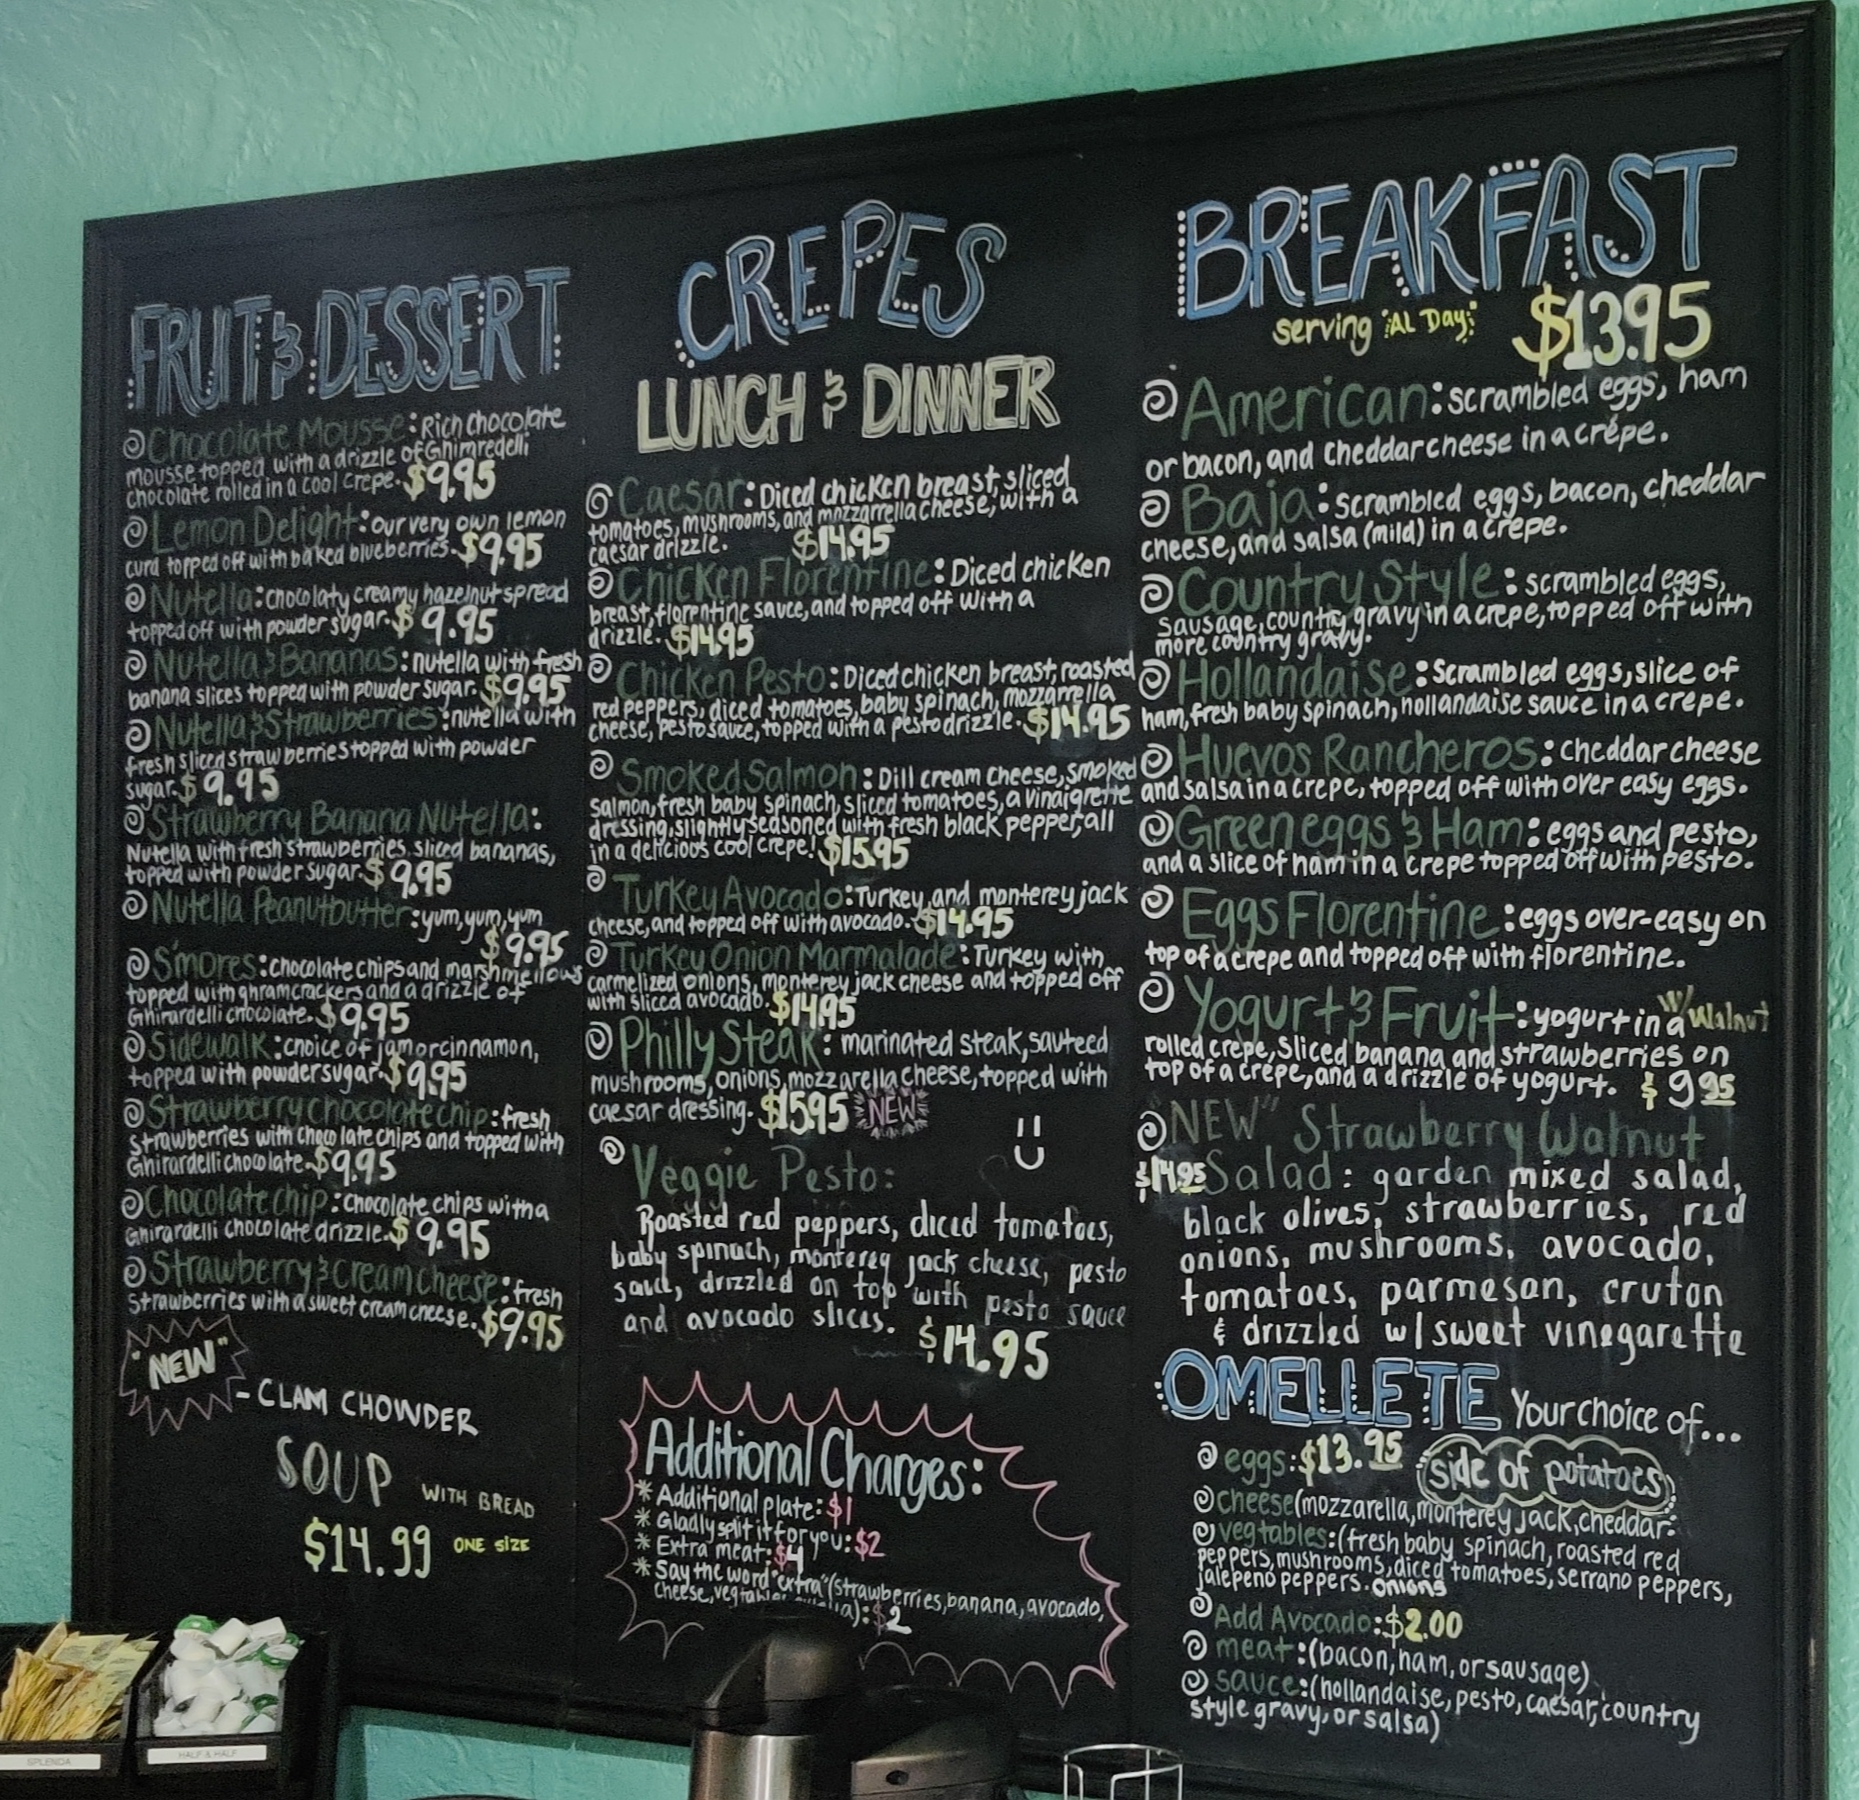 FRUIT & DESSERT
Chocolate Mousse: Rich chocolate
mousse topped with a drizzle of Ghimredelli
chocolate rolled in a cool crepe. $9.95
Lemon Delight: our very own lemon
curd topped off with baked blueberries. $9.95
Nutella: chocolaty creamy hazelnut spread
topped off with powder sugar. $9.95
Nutella & Bananas: nutella with fresh
banana slices topped with powder sugar. $9.95
Nutella & Strawberries: nutella with
fresh sliced strawberries topped with powder
sugar. $9.95
Strawberry Banana Nutella:
Nutella with fresh strawberries, sliced bananas,
topped with powder sugar. $9.95
Nutella Peanutbutter: yum, yum, yum
$9.95
S'mores: chocolate chips and marshmellows
topped with ghramcrackers and a drizzle of
Ghirardelli chocolate. $9.95
Sidewalk: choice of jam or cinnamon,
topped with powder sugar. $9.95
Strawberry chocolate chip: fresh
strawberries with chocolate chips and topped with
Ghirardelli chocolate. $9.95
Chocolate chip: chocolate chips with a
Ghirardelli chocolate drizzle. $9.95
Strawberry & Cream Cheese: fresh
strawberries with a sweet cream cheese. $9.95
"NEW"
- CLAM CHOWDER
SOUP WITH BREAD
$14.99 ONE SIZE
CREPES
LUNCH & DINNER
Caesar: Diced chicken breast, sliced
tomatoes, myshrooms, and mozzarrella cheese, with a
caesar drizzle. $14.95
Chicken Florentine: Diced chicken
breast, florentine sauce, and topped off with a
drizzle. $14.95
Chicken Pesto: Diced chicken breast, roasted
red peppers, diced tomatoes, baby spinach, mozzarrella
cheese, pesto sauce, topped with a pesto drizzle. $14.95
Smoked Salmon: Dill cream cheese, smoked
salmon, fresh baby spinach, sliced tomatoes, a vinaigrette
dressing, slightly seasoned with fresh black pepper, all
in a delicious cool crepe! $15.95
Turkey Avocado: Turkey and monterey jack
cheese, and topped off with avocado. $14.95
Turkey Onion Marmalade: Turkey with
carmelized onions, monterey jack cheese and topped off
with sliced avocado. $14.95
Philly Steak: marinated steak, sauteed
mushrooms, onions, mozzarella cheese, topped with
caesar dressing. $15.95 NEW
Veggie Pesto:
Roasted red peppers, diced tomatoes,
baby spinach, monterey jack cheese, pesto
sauce, drizzled on top with pesto sauce
and avocado slices. $14.95
Additional Charges:
* Additional plate: $1
* Gladly split it for you: $2
* Extra meat: $4
* Say the word "extra" (strawberries, banana, avocado,
cheese, : $2
BREAKFAST
serving AL Day $13.95
American: scrambled eggs, ham
or bacon, and cheddar cheese in a crépe.
Baja: scrambled eggs, bacon, cheddar
cheese, and salsa (mild) in a crepe.
Country Style: scrambled eggs,
sausage, country gravy in a crepe, topped off with
more country gravy.
Hollandaise: Scrambled eggs, slice of
ham, fresh baby spinach, hollandaise sauce in a crepe.
Huevos Rancheros: cheddar cheese
and salsa in a crepe, topped off with over easy eggs.
Green eggs & Ham: eggs and pesto,
and a slice of ham in a crepe topped off with pesto.
Eggs Florentine: eggs over-easy on
top of a crepe and topped off with florentine.
Yogurt & Fruit: yogurt in a w/ Walnut
rolled crepe, sliced banana and strawberries on
top of a crepe, and a drizzle of yogurt. $9.95
"NEW" Strawberry Walnut
$14.95 Salad: garden mixed salad,
black olives, strawberries, red
onions, mushrooms, avocado,
tomatoes, parmesan, cruton
& drizzled w/ sweet vinegarette
OMELLETE Your choice of...
eggs: $13.95 side of potatoes
cheese (mozzarella, monterey jack, cheddar.
vegtables: (fresh baby spinach, roasted red
peppers, mushrooms, diced tomatoes, serrano peppers,
jalepeno peppers. onions
Add Avocado: $2.00
meat: (bacon, ham, or sausage)
sauce: (hollandaise, pesto, caesar, country
style gravy, or salsa)
SPLENDA
HALF & HALF